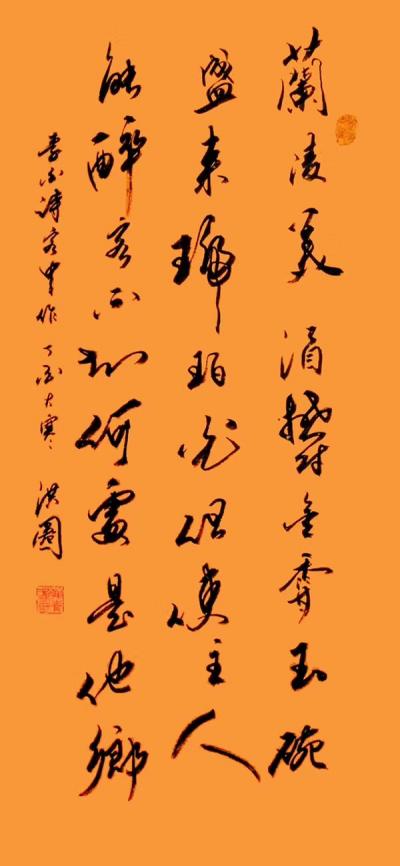 蘭陵美酒鬱金香玉碗
盛来琥珀光但使主人
能醉客不知何處是他鄉
李白詩客中作 丁酉大寒 洪圖